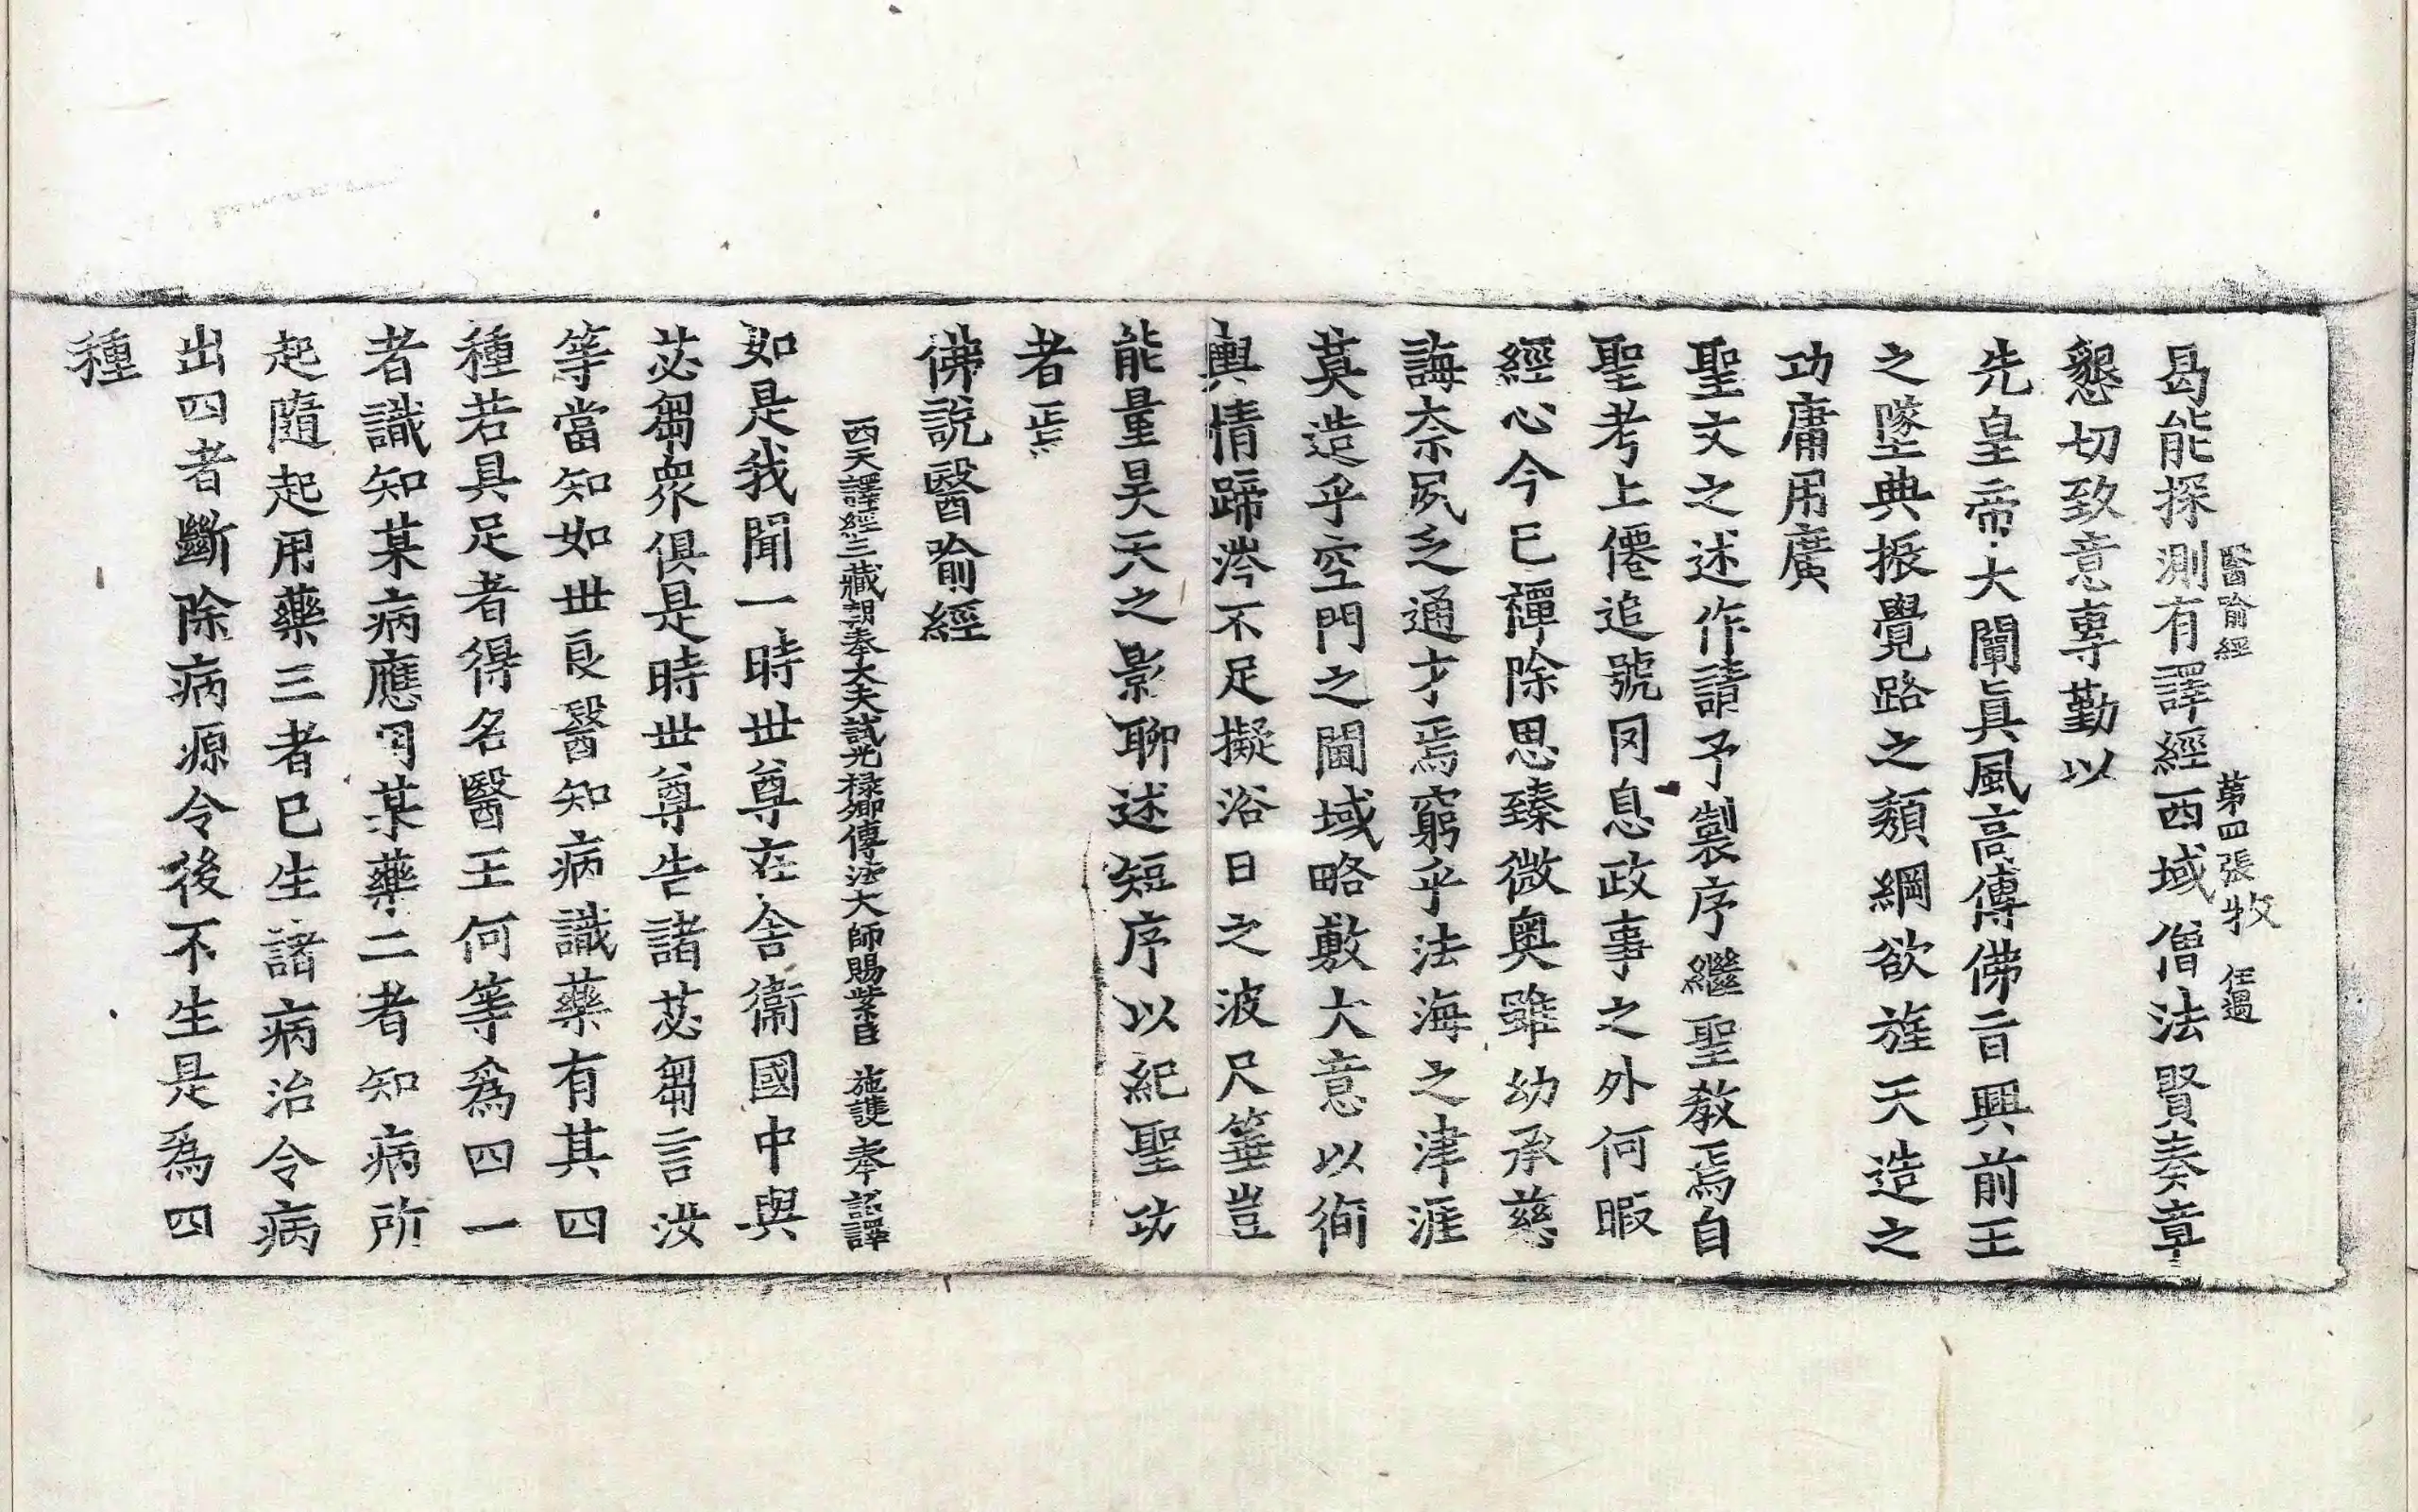 醫喻經 第四張 牧 任遇
曷能探測有譯經西域僧法賢奏章
懇切致意專勤以
先皇帝大闡眞風高傳佛旨興前王
之墜典振覺路之頹綱欲旌天造之
功庸用廣
聖文之述作請予製序繼聖教焉自
聖考上僊追號罔息政事之外何暇
經心今已禫除思臻微奧雖幼承慈
誨奈夙乏通才焉窮乎法海之津涯
莫造乎空門之閫域略敷大意以徇
輿情蹄涔不足擬浴日之波尺箠豈
能量昊天之影聊述短序以紀聖功
者焉
佛說醫喻經
西天譯經三藏朝奉大夫試光祿卿傳法大師賜紫臣 施護 奉 詔譯
如是我聞一時世尊在舍衞國中與
苾芻衆俱是時世尊告諸苾芻言汝
等當知如世良醫知病識藥有其四
種若具足者得名醫王何等爲四一
者識知某病應用某藥二者知病所
起隨起用藥三者已生諸病治令病
出四者斷除病源令後不生是爲四
種